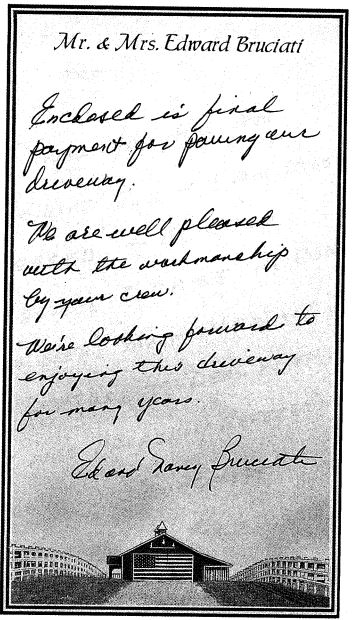 Mr. & Mrs. Edward Bruciati
Enclosed is final
payment for paving our
driveway.
We are well pleased
with the workmanship
by your crew.
We're looking forward to
enjoying this driveway
for many years.
Ed and Nancy Bruciati